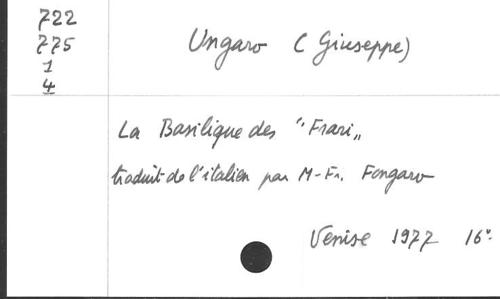 722
775
1
4
Ungaro (Giuseppe)
La Basilique des "Frari„
traduit de l'italien par M-Fr. Fongaro
Venise 1977 16°.